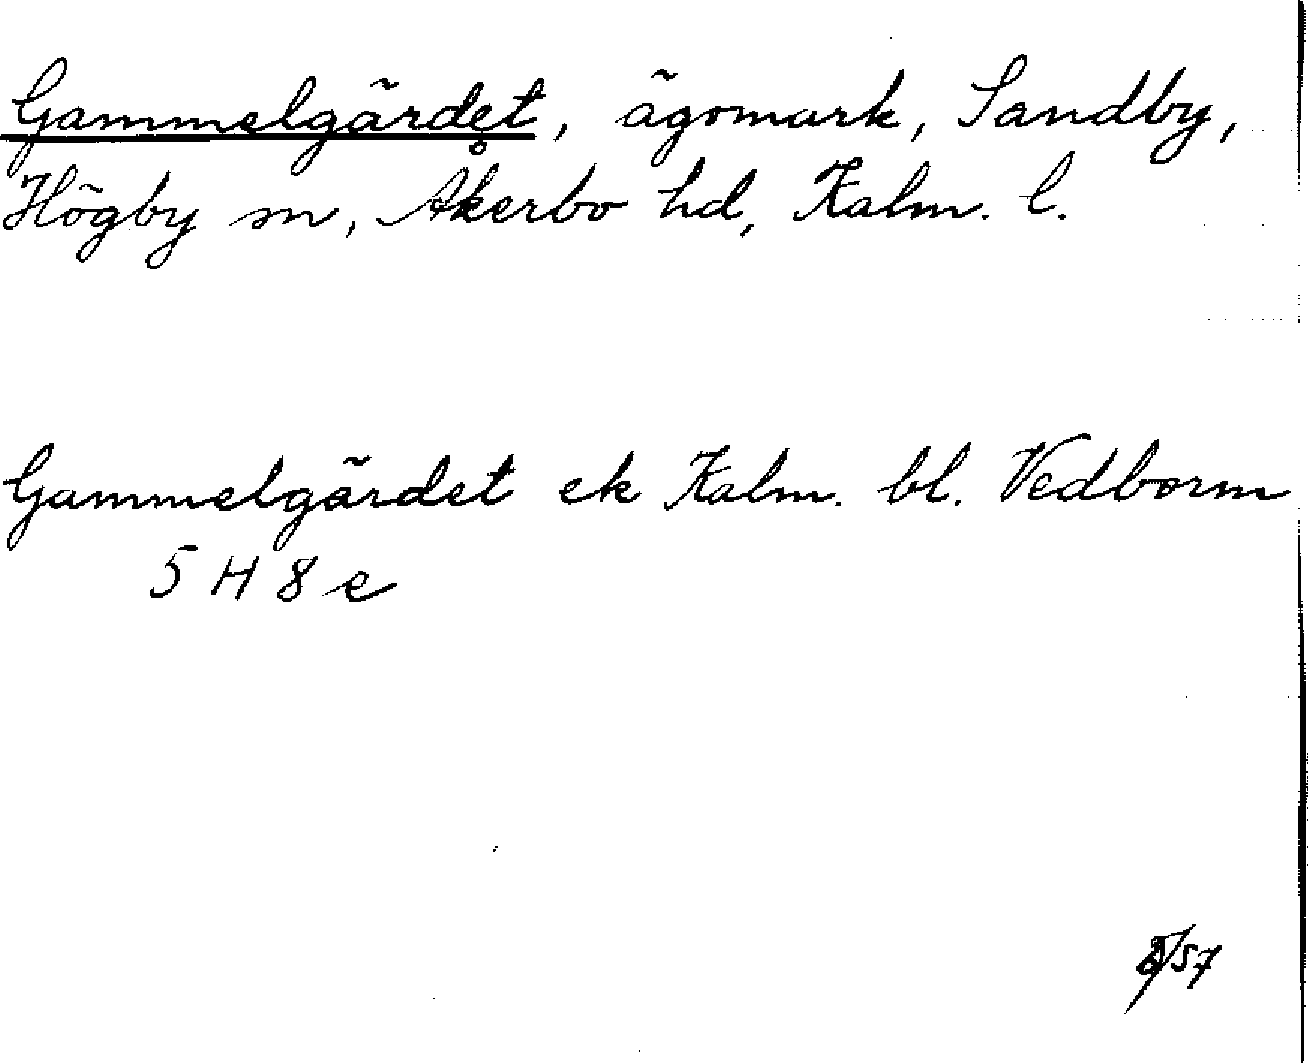 Gammelgärdet, ägomark, Sandby,
Högby sn, Åkerbo hd, Kalm. l.
Gammelgärdet ek Kalm. bl. Vedborm
5 H 8 e